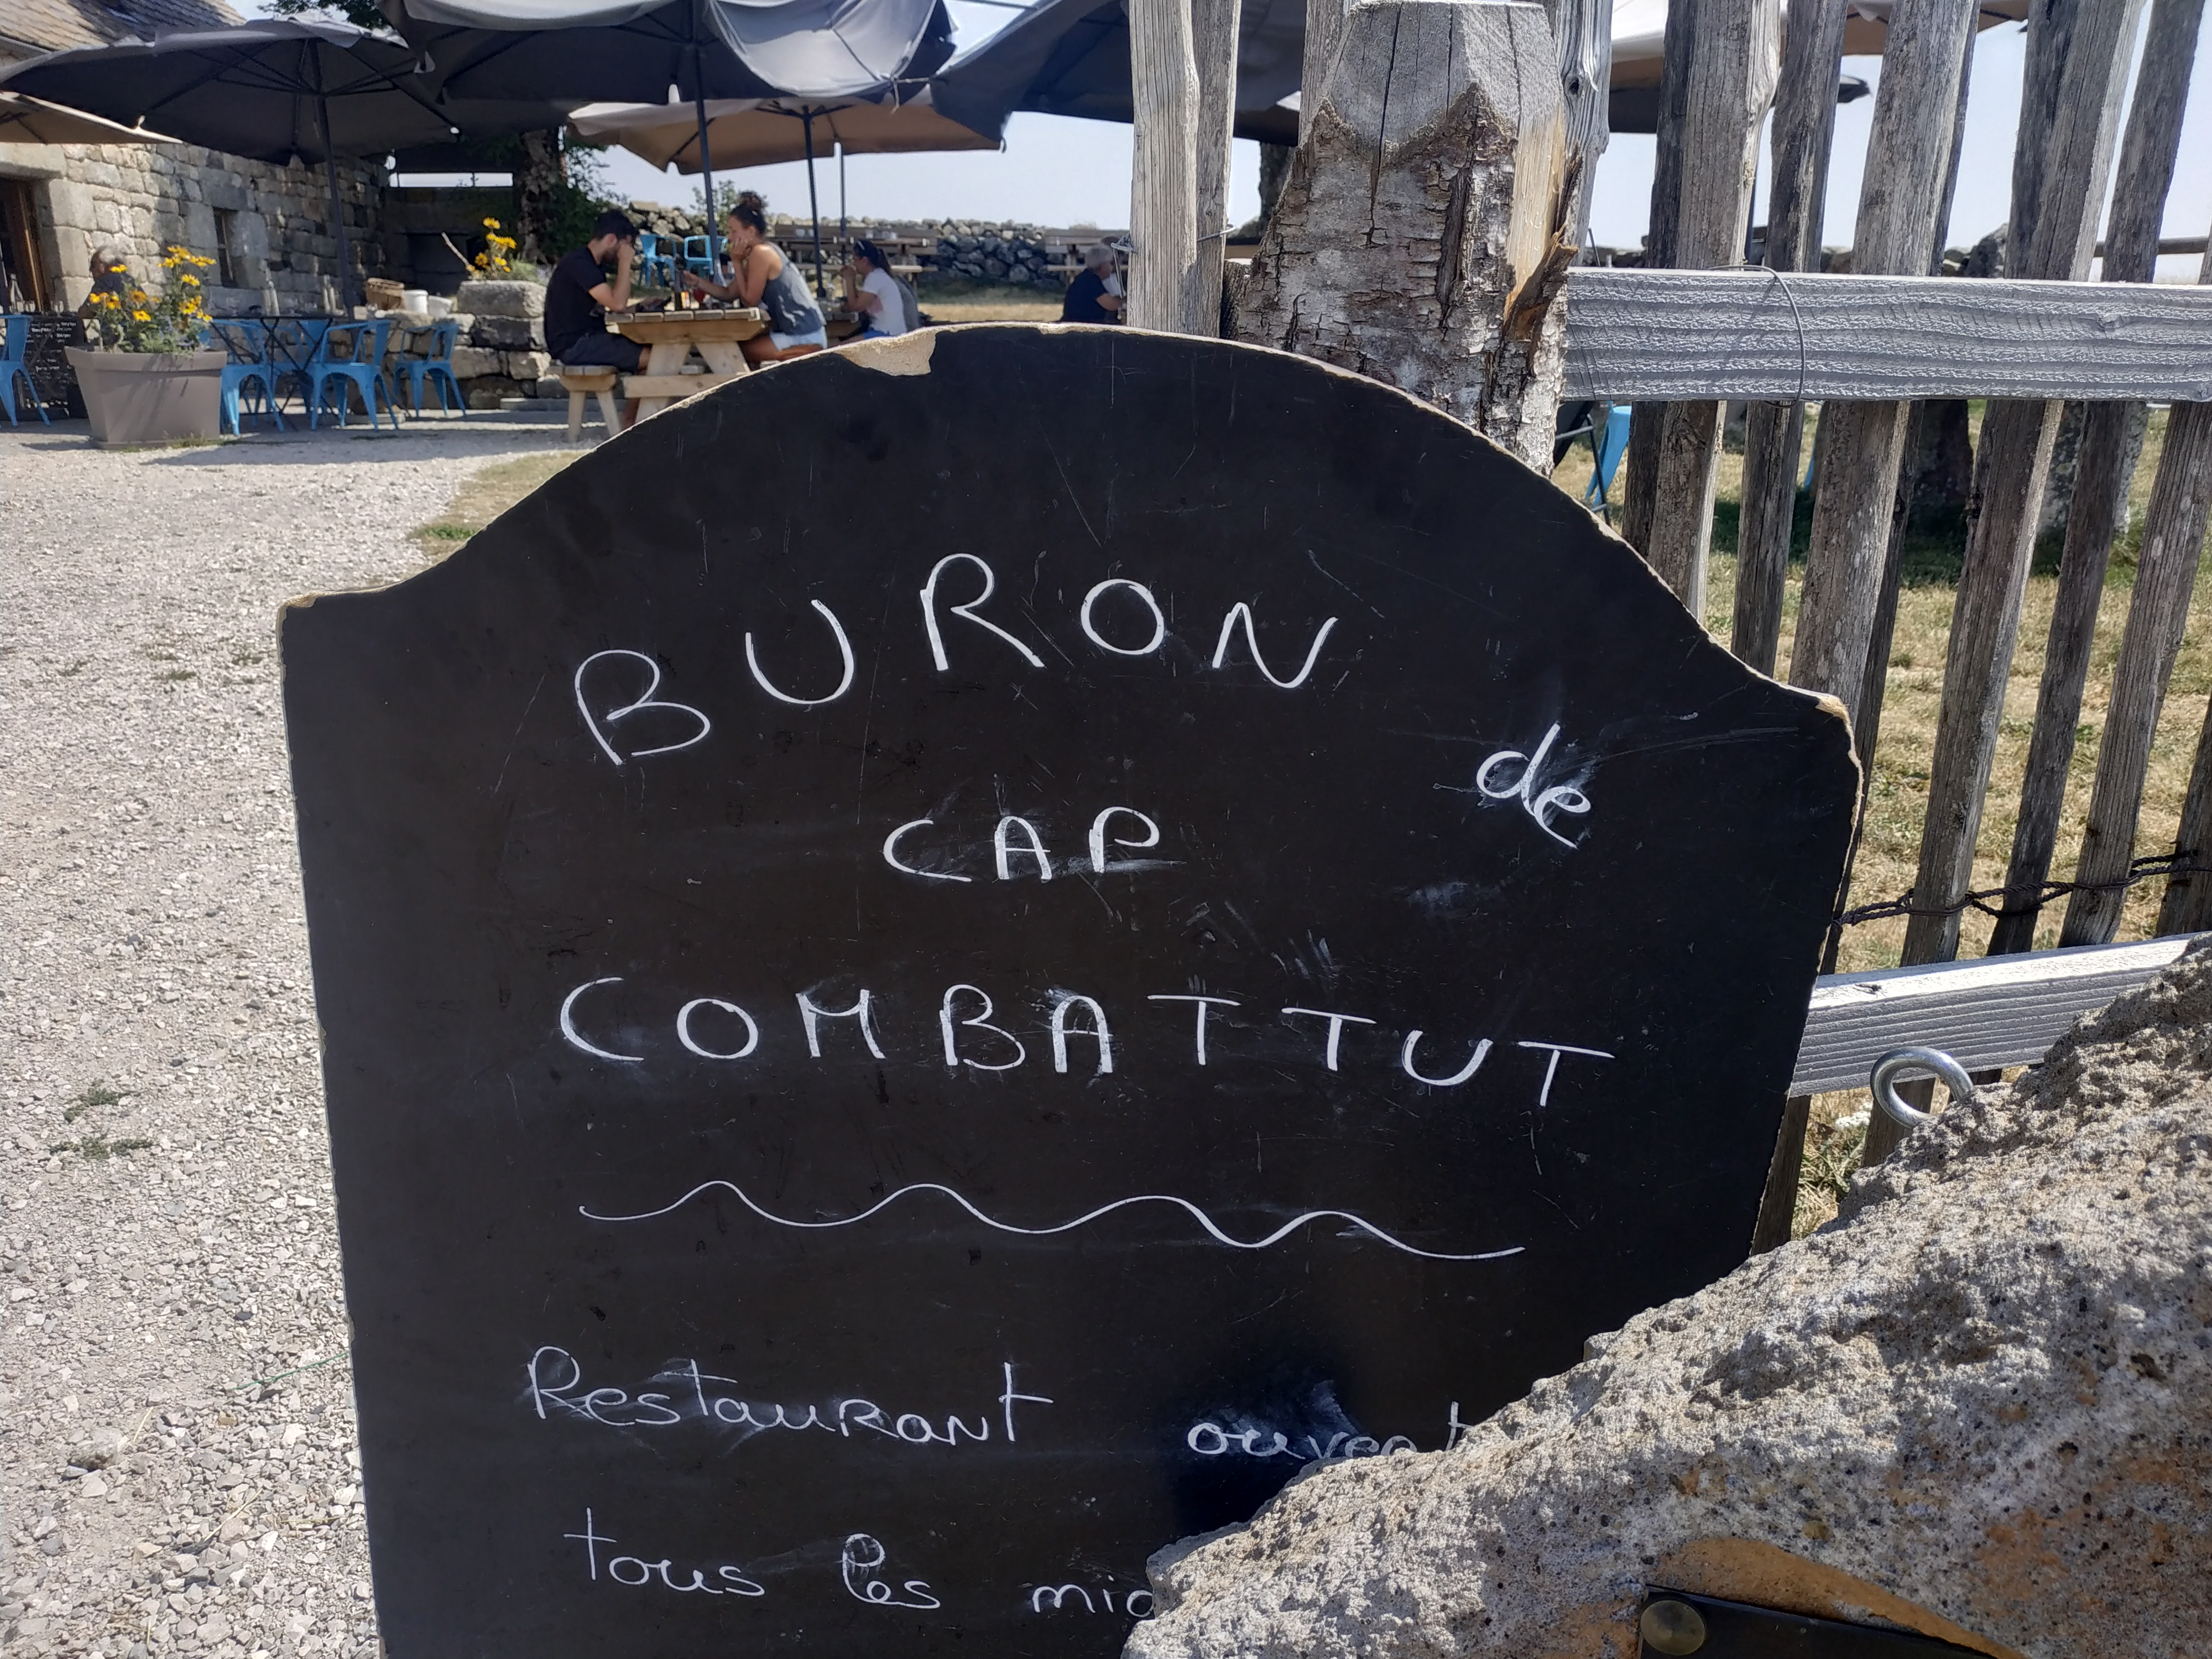 BURON de
CAP
COMBATTUT
Restaurant ouvert
tous les